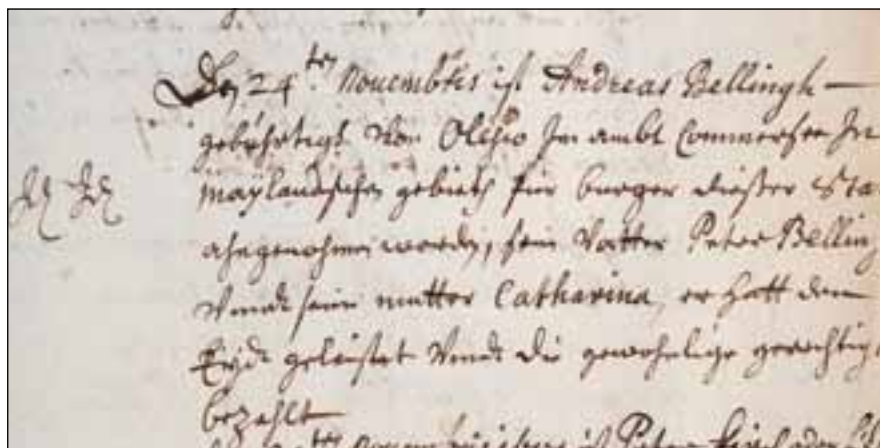 Den 24ten Nouembris ist Andreas Bellingh
gebührtigh Von Olchio Im ambt Commersee In
maÿlandischen gebieth für burger dießer Sta
ahngenohmen worden, sein Vatter Peter Bellin
Vnndt seine mutter Catharina, er hatt den
Eÿdt geleistet Vnndt die gewohnlige gerechtig
bezahlt
Nouembris ist Peter